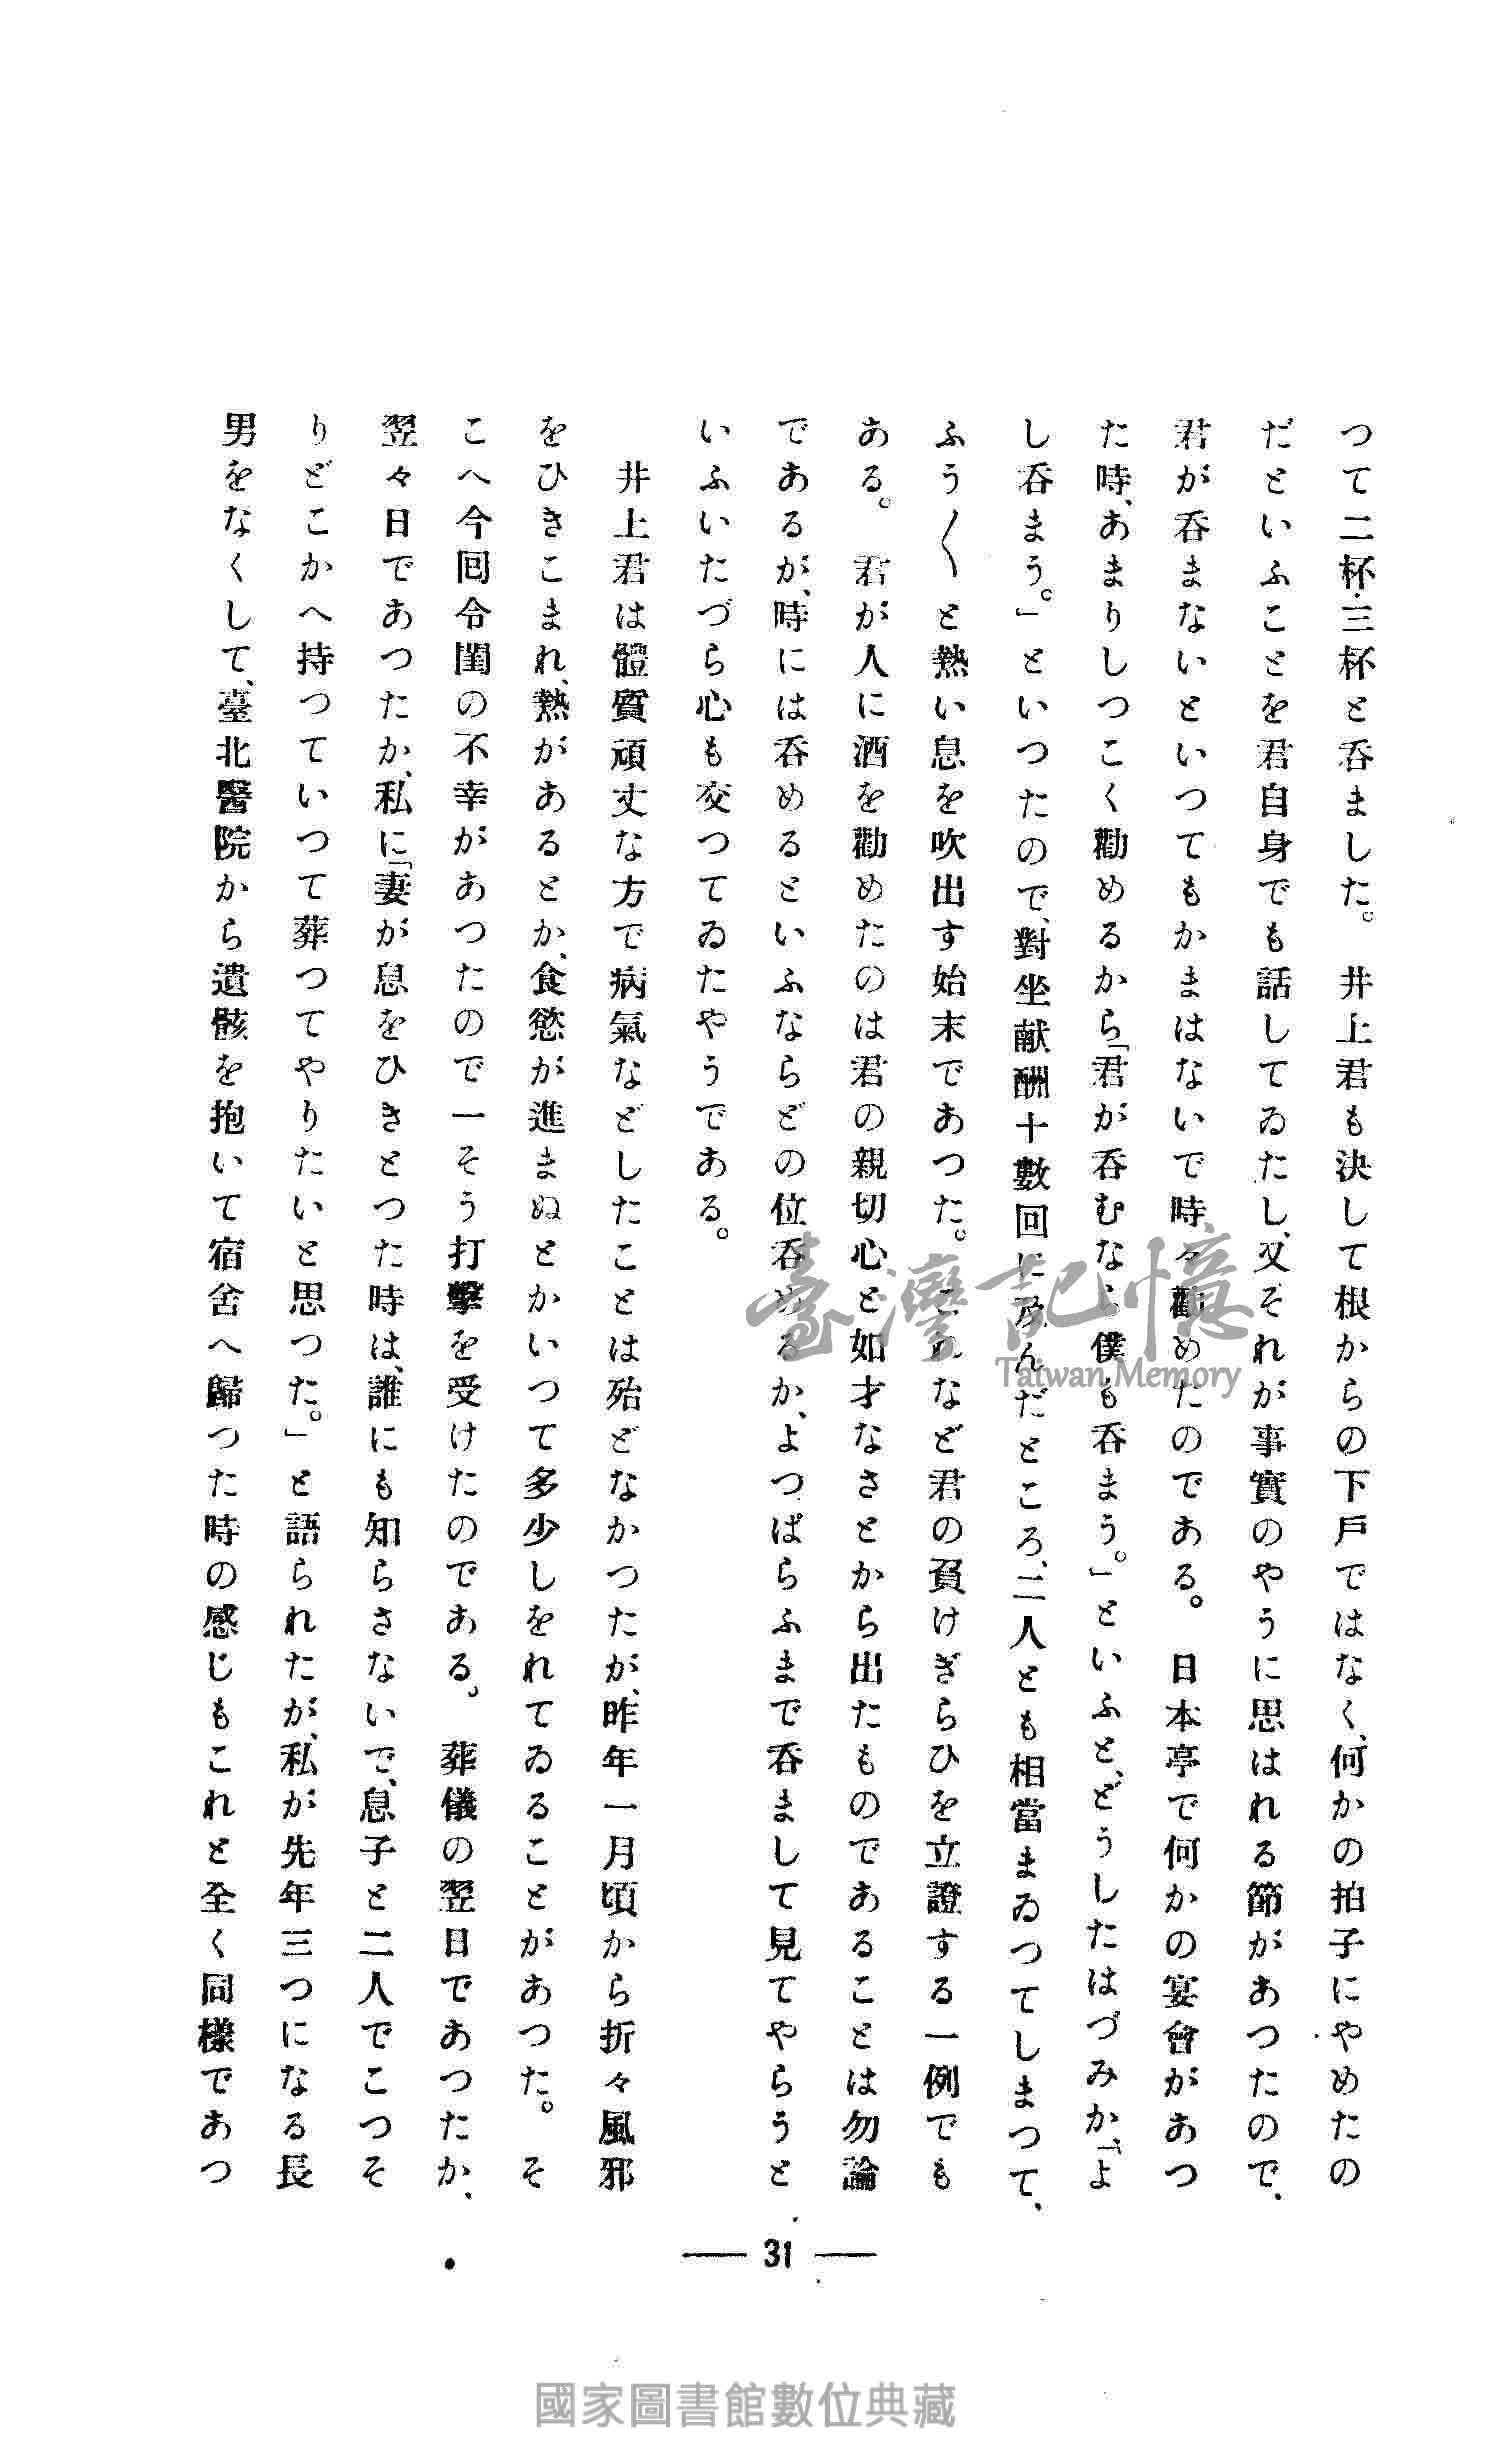 つて二杯三杯と呑ました。　井上君も決して根からの下戸ではなく、何かの拍子にやめたの
だといふことを君自身でも話してゐたし、又それが事實のやうに思はれる節があつたので、
君が呑まないといつてもかまはないで時々勸めたのである。　日本亭で何かの宴會があつ
た時、あまりしつこく勸めるから「君が呑むなら僕も呑まう。」といふと、どうしたはづみか、「よ
し呑まう。」といつたので、對坐献酬十數回に及んだところ、二人とも相當まゐつてしまつて、
ふう〱と熱い息を吹出す始末であつた。これなど君の負けぎらひを立證する一例でも
ある。　君が人に酒を勸めたのは君の親切心と如才なさとから出たものであることは勿論
であるが、時には呑めるといふならどの位呑めるか、よつぱらふまで呑まして見てやらうと
いふいたづら心も交つてゐたやうである。
井上君は體質頑丈な方で病氣などしたことは殆どなかつたが、昨年一月頃から折々風邪
をひきこまれ、熱があるとか、食慾が進まぬとかいつて多少しをれてゐることがあつた。　そ
こへ今囘令閨の不幸があつたので一そう打擊を受けたのである。　葬儀の翌日であつたか、
翌々日であつたか、私に「妻が息をひきとつた時は、誰にも知らさないで、息子と二人でこつそ
りどこかへ持つていつて葬つてやりたいと思つた。」と語られたが、私が先年三つになる長
男をなくして、臺北醫院から遺骸を抱いて宿舍へ歸つた時の感じもこれと全く同樣であつ
31
臺灣記憶
Taiwan Memory
國家圖書館數位典藏